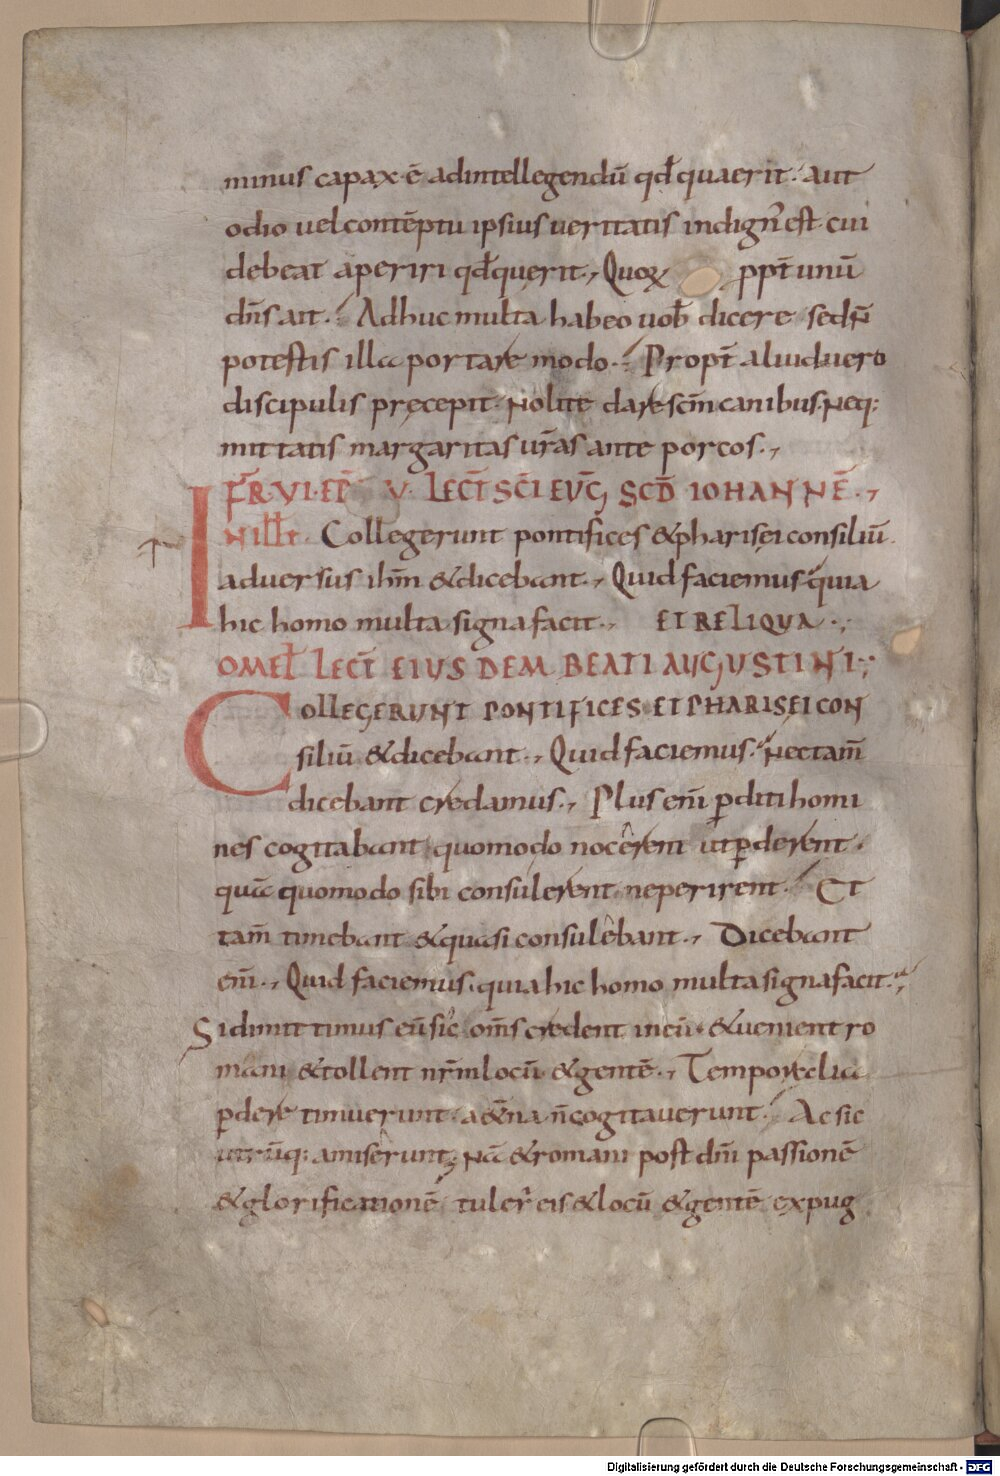 minus capax·ē adintellegendū qđ quaerit· aut
odio uel contēptu ipsius ueritatis indign̄ est· cui
debeat aperiri qđ querit·, Quoꝝ ppt̄ unū
dn̄s ait·: Adhuc multa habeo uob̄ dicere sed n̄
potestis illa portare modo·: Propt̄ aliud uero
discipulis pręcepit· Nolite dare sc̄m canibus· Neq;
mittatis margaritas ur̄as ante porcos·,
FR̄· VI· EP̄ V· LECT̄ SC̄I EVḠ SCD̄ IOHANNĒ·,
IN ill̄ t̄· Collegerunt pontifices & pharisei consiliū
aduersus ihm̄ & dicebant·, Quid faciemus quia
hic homo multa signa facit·, ET RELIQUA·,
OMEL̄ LECT̄ EIUSDEM BEATI AUGUSTINI·,
COLLEGERUNT PONTIFICES· ET PHARISEI CON
siliū & dicebant·, Quid faciemus· Nec tam̄
dicebant credamus·, Plus eni̅ ꝑditi homi
nes cogitabant quomodo nocerent ut ꝑderent·
quā quomodo sibi consulerent ne perirent·: Et
tam̄ timebant & quasi consulebant·, Dicebant
eni̅·, Quid faciemus· quia hic homo multa signa facit·,
Si dimittimus eū sic· om̄s credent in eū· & uenient ro
mani & tollent nr̄m locū & gentē·, Temporalia
ꝑdere timuerunt· a&̄na n̄ cogitauerunt·: Ac sic
utrūq; amiserunt; Nā & romani post dn̄i passionē
& glorificationē tuler̄ eis & locū & gentē expug
Digitalisierung gefördert durch die Deutsche Forschungsgemeinschaft - DFG